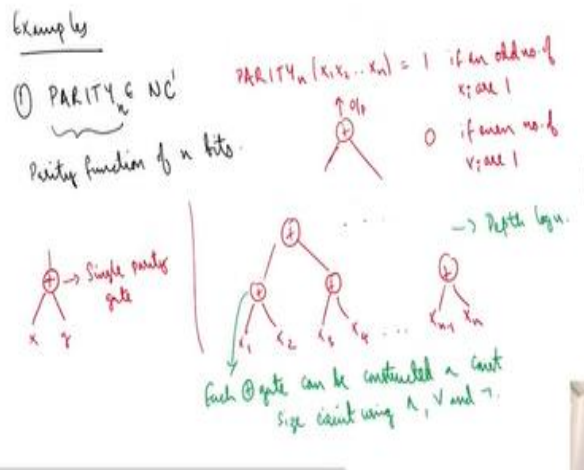 Examples
① PARITYₙ ∈ NC¹
Parity function of n bits.
PARITYₙ (x₁x₂...xₙ) = 1 if an odd no. of
xᵢ are 1
0 if even no. of
xᵢ are 1
↑ o/p
⊕
⊕ → Single parity
gate
x y
⊕ .... → Depth log n.
⊕ ⊕ ⊕
x₁ x₂ x₃ x₄ ... xₙ₋₁ xₙ
Each ⊕ gate can be constructed a const
size circuit using ∧, ∨ and ¬.